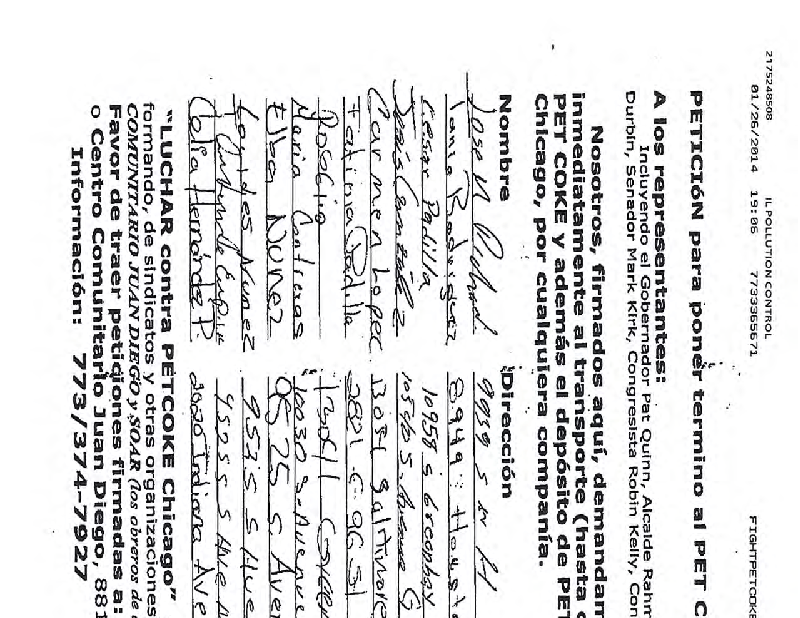 2175248508 IL POLLUTION CONTROL
01/26/2014 19:06 7733365671 FIGHTPETCOKE
PETICIóN para poner termino al PET C
A los representantes:
Incluyendo el Gobernador Pat Quinn, Alcalde Rahm
Durbin, Senador Mark Kirk, Congresista Robin Kelly, Con
Nosotros, firmados aquí, demandam
inmediatamente al transporte (hasta c
PET COKE y además el depósito de PET
Chicago, por cualquiera compañía.
Nombre Dirección
Jose
Tania Rodriguez 8949 S Houst
Cesar Padilla 10958 S Greenbay
Jesús González 10546 S. Avenue G
Carmen Lopez 13031 Baltimore
Fatima Padilla 2821 E 96 St
Rocio
Maria Contreras 10030 S. Avenue
Elba Nunez 9525 S. Aven
Lourdes Nunez 9525 S Ave
9525 S Ave
Celia Hernández P. Indiana Ave
"LUCHAR contra PETCOKE Chicago"
formando, de sindicatos y otras organizaciones
COMUNITARIO JUAN DIEGO y SOAR (los obreros de
Favor de traer peticiones firmadas a:
o Centro Comunitario Juan Diego, 881
Información: 773/374-7927